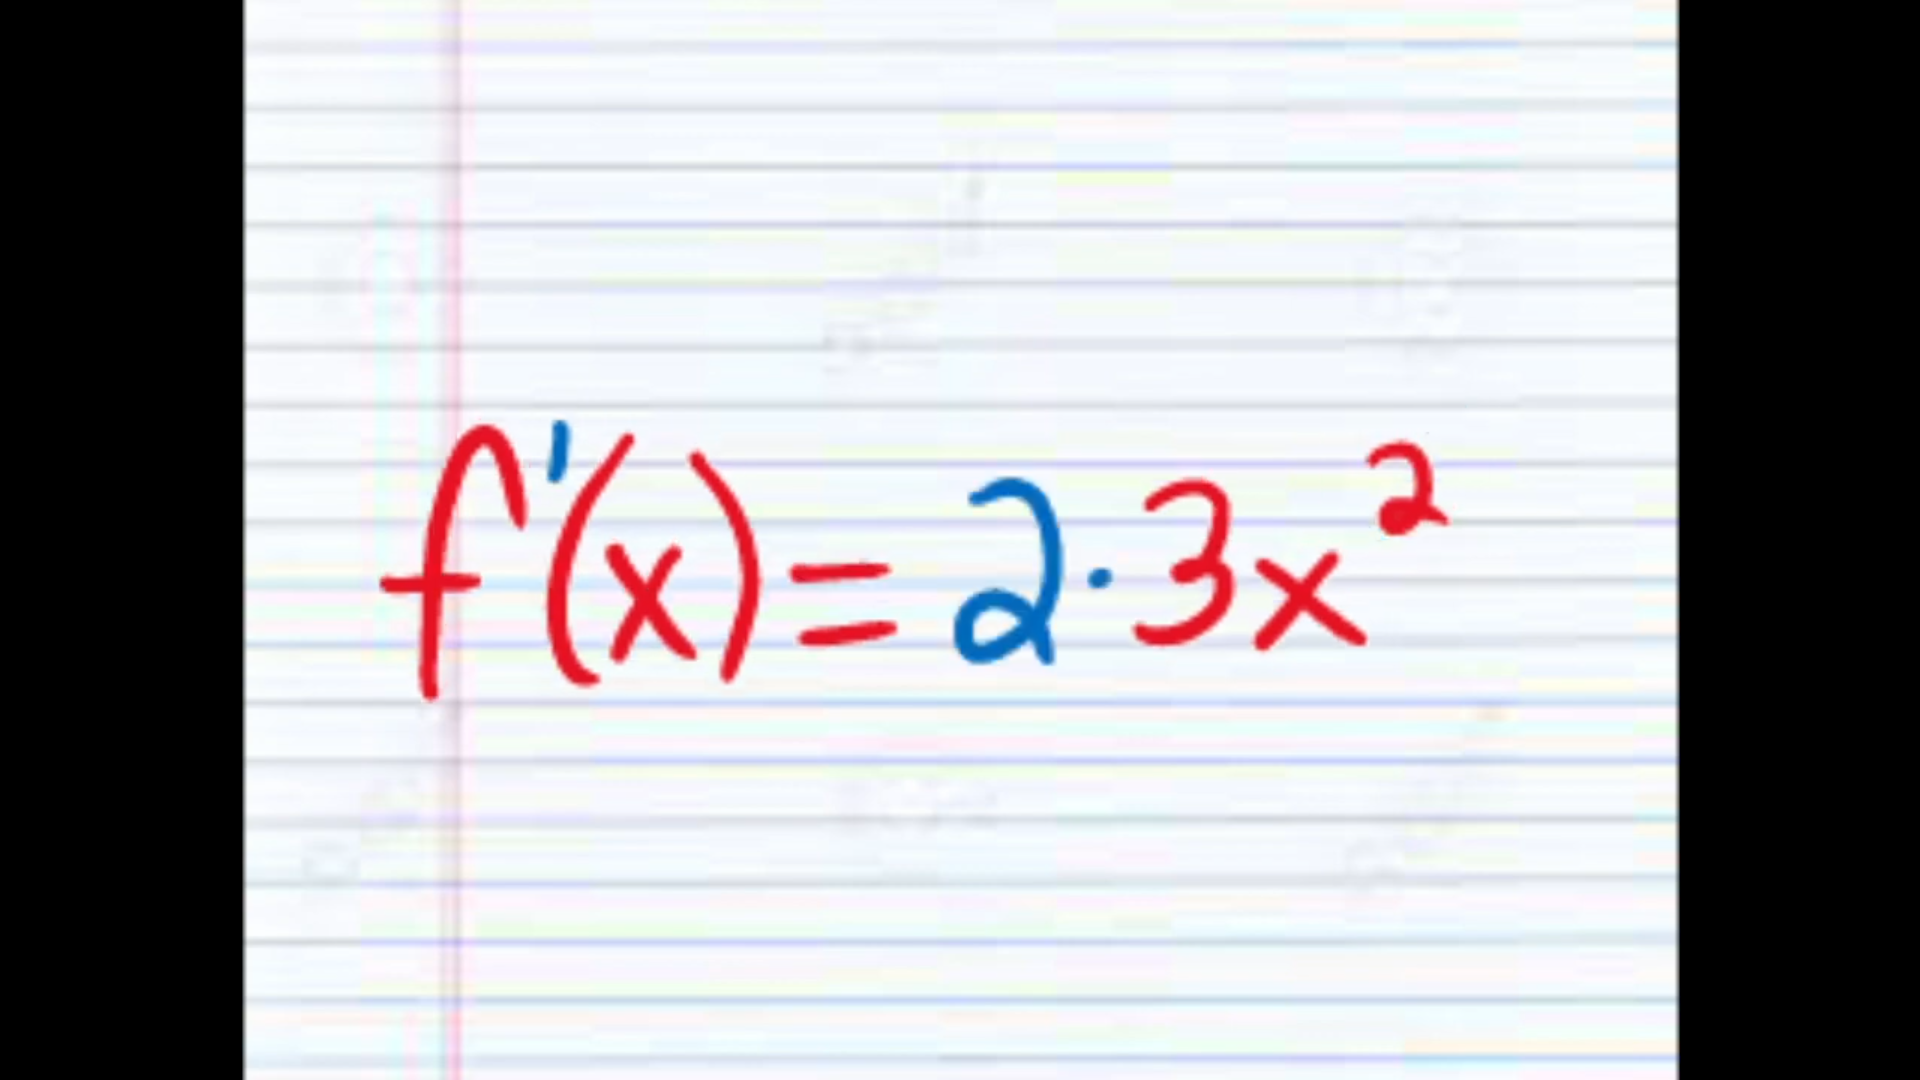 f'(x) = 2·3x²